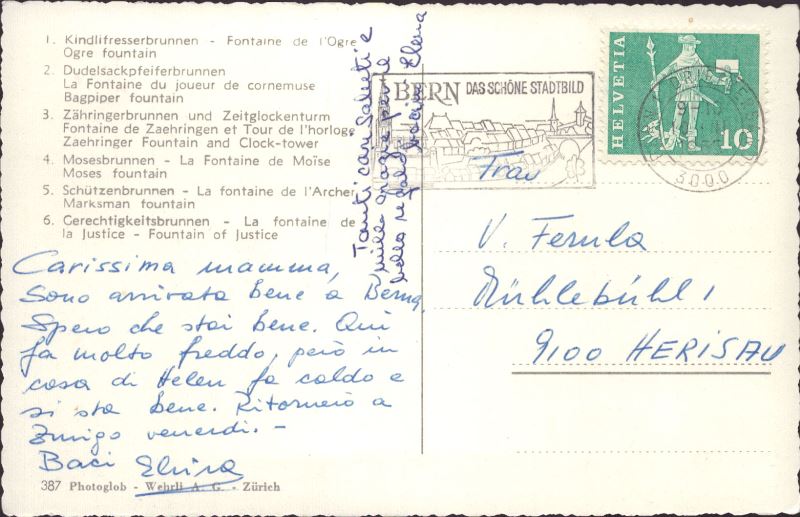 1. Kindlifresserbrunnen - Fontaine de l'Ogre
Ogre fountain
2. Dudelsackpfeiferbrunnen
La Fontaine du joueur de cornemuse
Bagpiper fountain
3. Zähringerbrunnen und Zeitglockenturm
Fontaine de Zaehringen et Tour de l'horloge
Zaehringer Fountain and Clock-tower
4. Mosesbrunnen - La Fontaine de Moïse
Moses fountain
5. Schützenbrunnen - La fontaine de l'Archer
Marksman fountain
6. Gerechtigkeitsbrunnen - La fontaine de
la Justice - Fountain of Justice
Carissima mamma,
Sono arrivata bene a Berna.
Spero che stai bene. Qui
fa molto freddo, però in
casa di Helen fa caldo e
si sta bene. Ritornerò a
Zurigo venerdì. -
Baci Elvira
387 Photoglob - Wehrli A. G. - Zürich
Tanti cari saluti e
mille grazie per il
bello regalo baci Elena
BERN DAS SCHÖNE STADTBILD
HELVETIA
10
3000
Frau
V. Ferula
Mühlebühl 1
9100 HERISAU